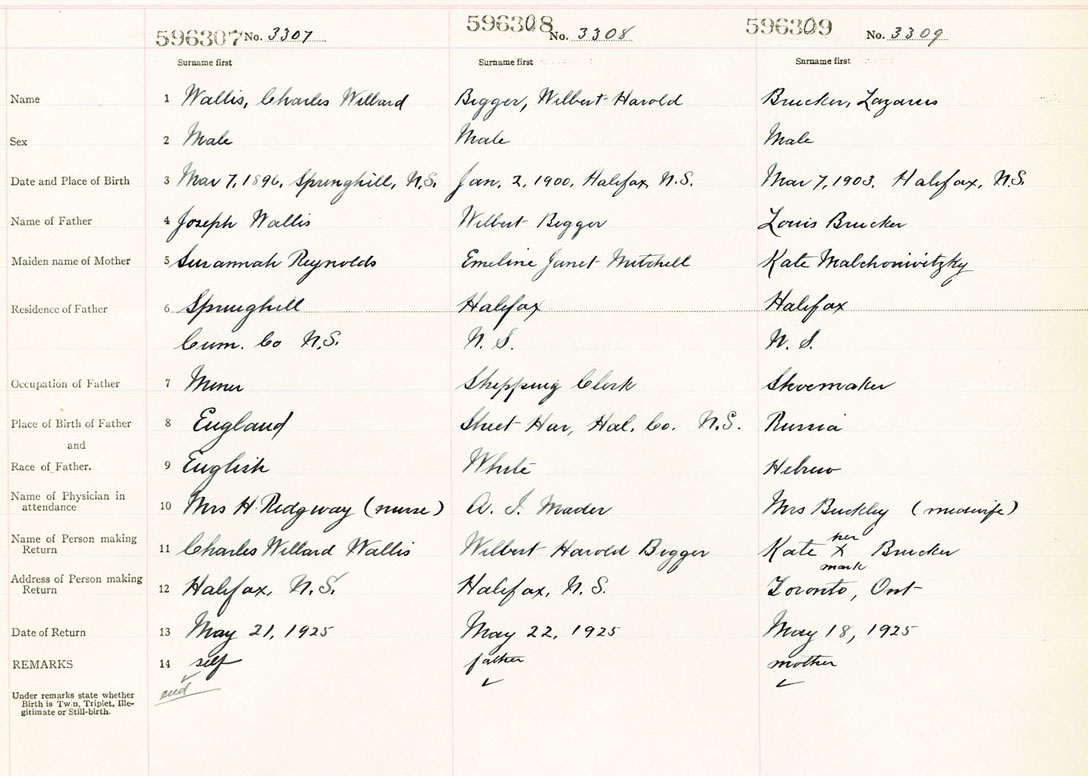 596307 No. 3307 596308 No. 3308 596309 No. 3309
Surname first Surname first Surname first
Name 1 Wallis, Charles Willard Bigger, Wilbert Harold Brucker, Lazarus
Sex 2 Male Male Male
Date and Place of Birth 3 Mar 7, 1896, Springhill, N.S. Jan. 2, 1900. Halifax, N.S. Mar 7, 1903. Halifax, N.S.
Name of Father 4 Joseph Wallis Wilbert Bigger Louis Brucker
Maiden name of Mother 5 Susannah Reynolds Emeline Janet Mitchell Kate Malchowivitzky
Residence of Father 6 Springhill Halifax Halifax
Cum. Co N.S. N. S. N. S.
Occupation of Father 7 Miner Shipping Clerk Shoemaker
Place of Birth of Father 8 England Sheet Har, Hal. Co. N.S. Russia
and
Race of Father. 9 English White Hebrew
Name of Physician in
attendance 10 Mrs H. Ridgway (nurse) A. I. Mader Mrs Buckley (midwife)
Name of Person making
Return 11 Charles Willard Wallis Wilbert Harold Bigger Kate her X mark Brucker
Address of Person making
Return 12 Halifax, N.S. Halifax, N.S. Toronto, Ont
Date of Return 13 May 21, 1925 May 22, 1925 May 18, 1925
REMARKS 14 self father mother
Under remarks state whether
Birth is Twin, Triplet, Ille-
gitimate or Still-birth.